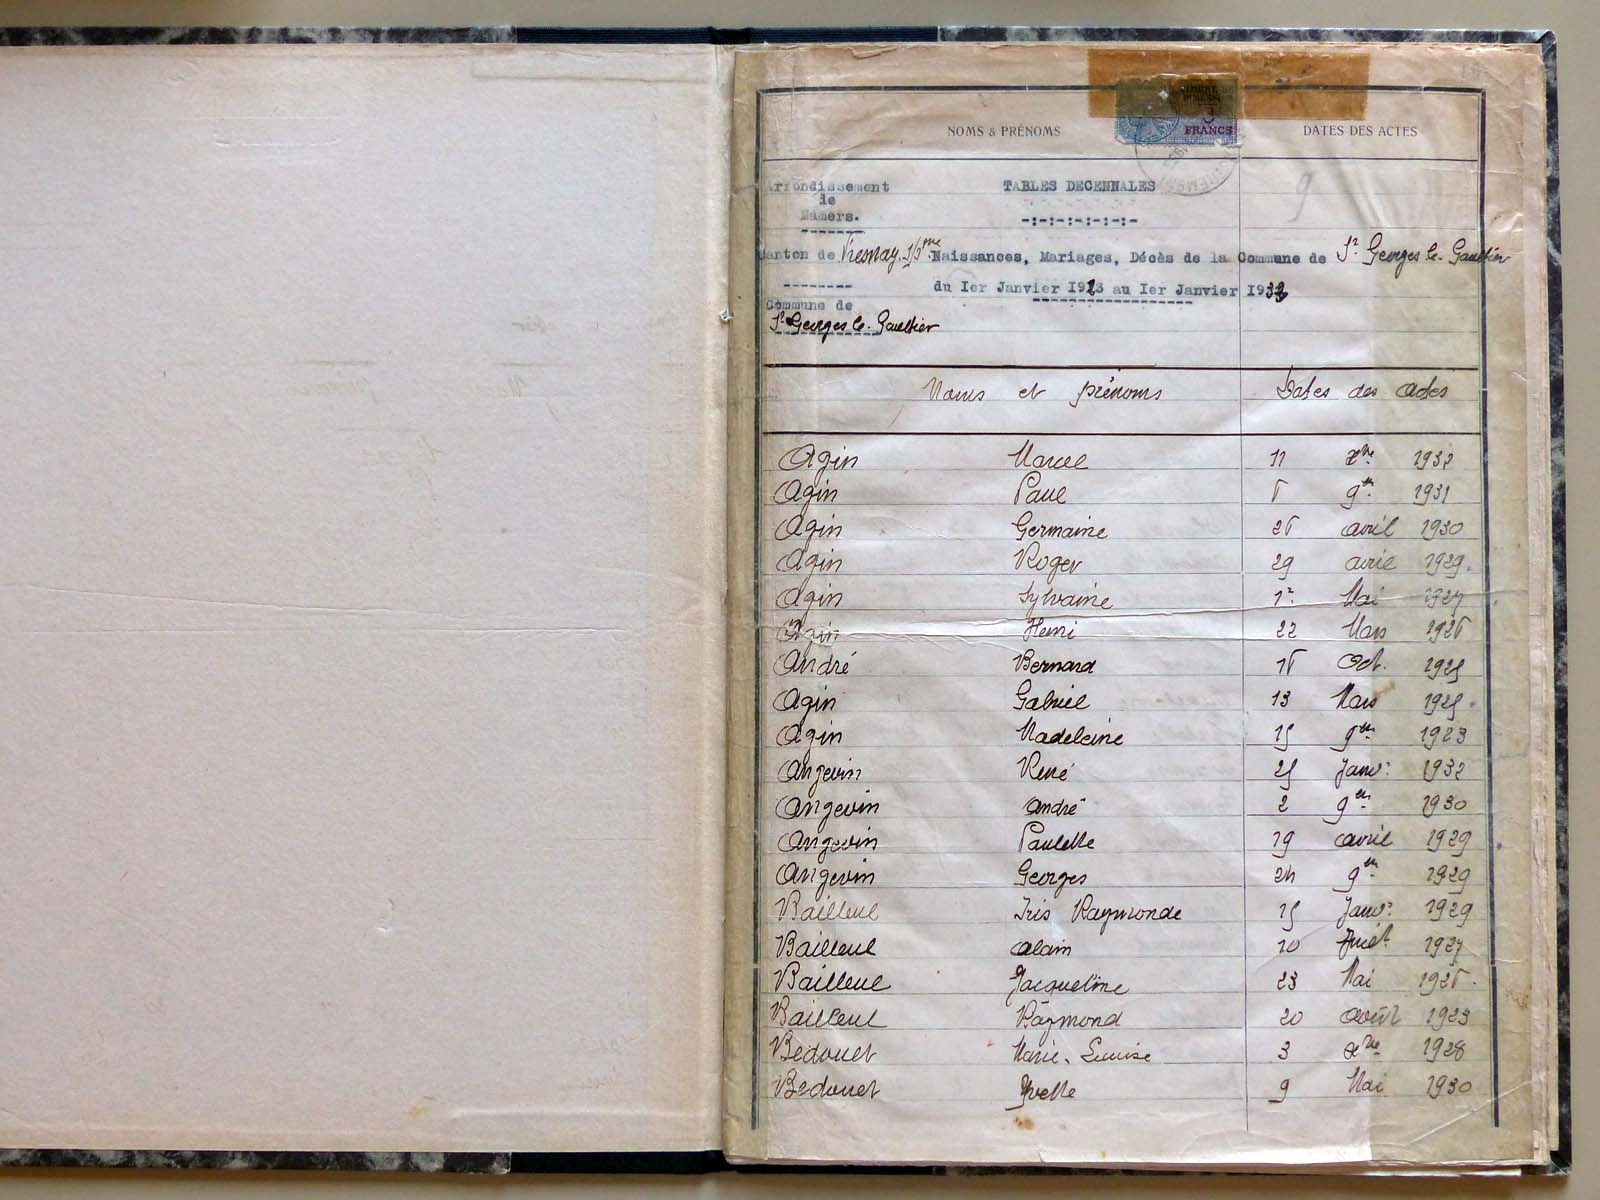 NOMS & PRÉNOMS
DATES DES ACTES
3
FRANCS
Arrondissement
de
Mamers.
TABLES DECENNALES
9
-:-:-:-:-:-:-
Canton de Fresnay s/S
Naissances, Mariages, Décès de la Commune de St Georges le Gaultier
du Ier Janvier 1923 au Ier Janvier 1933
Commune de
St Georges le Gaultier
Noms et prénoms Dates des actes
Agin Marcel 11 xbre 1932
Agin Paul 6 9bre 1931
Agin Germaine 26 avril 1930
Agin Roger 29 avril 1929
Agin Sylvaine 1er Mai 1927
Agin Henri 22 Mars 1926
André Bernard 16 Oct. 1925
Agin Gabriel 13 Mars 1925
Agin Madeleine 15 9bre 1923
Angevin René 25 Janvr 1932
Angevin André 2 9bre 1930
Angevin Paulette 19 avril 1929
Angevin Georges 24 9bre 1929
Bailleul Iris Raymonde 15 Janvr 1929
Bailleul Alain 10 1927
Bailleul Jacqueline 23 Mai 1926
Bailleul Raymond 20 août 1923
Bedouet Marie-Louise 3 xbre 1928
Bedouet Yvette 9 Mai 1930